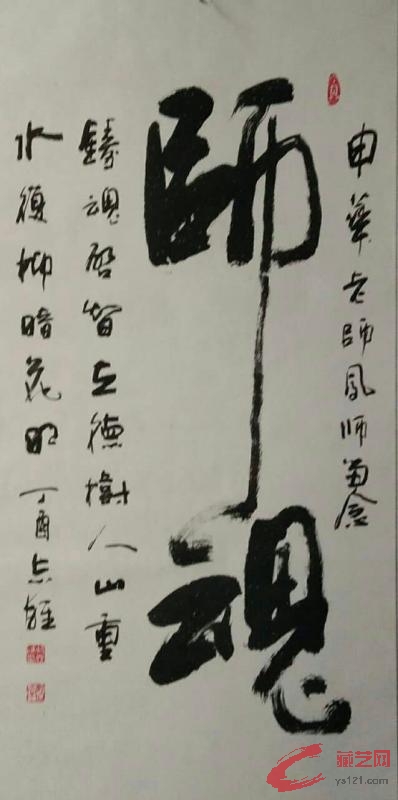 申華老師鳳師留念
師魂
鑄魂啓智立德樹人山重
水復柳暗花明丁酉志雄
藏艺网
ys121.com